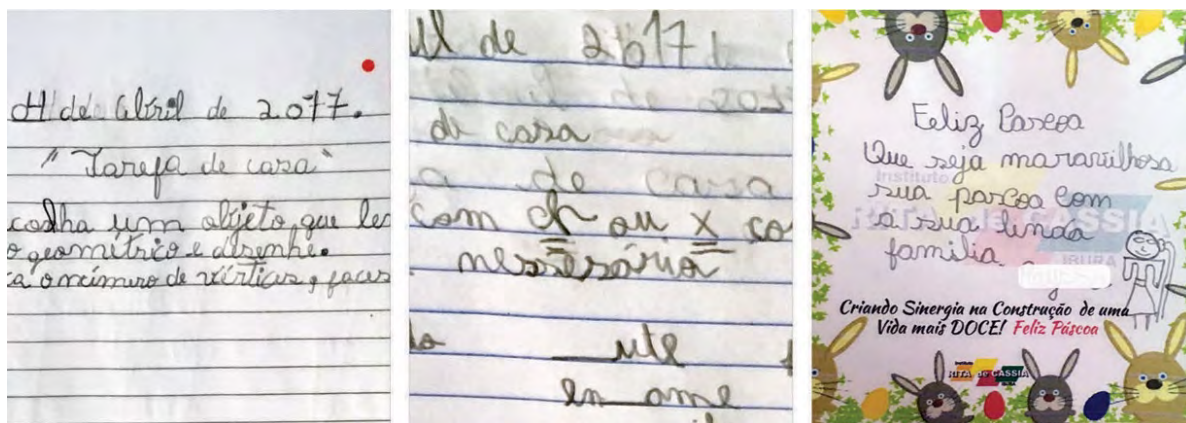 04 de Abril de 2017.
"Tarefa de casa"
colha um objeto, que le
o geométrico e desenhe.
a o número de vértices, faces
de 2017
de casa
a de casa
com ch ou x co
nessesário
ute
en ame
Feliz Parcoa
Que seja maravilhosa
sua parcoa com
a sua linda
familia
Instituto
RITA de CÁSSIA
IBURA
Criando Sinergia na Construção de uma
Vida mais DOCE! Feliz Páscoa
Instituto
RITA de CÁSSIA